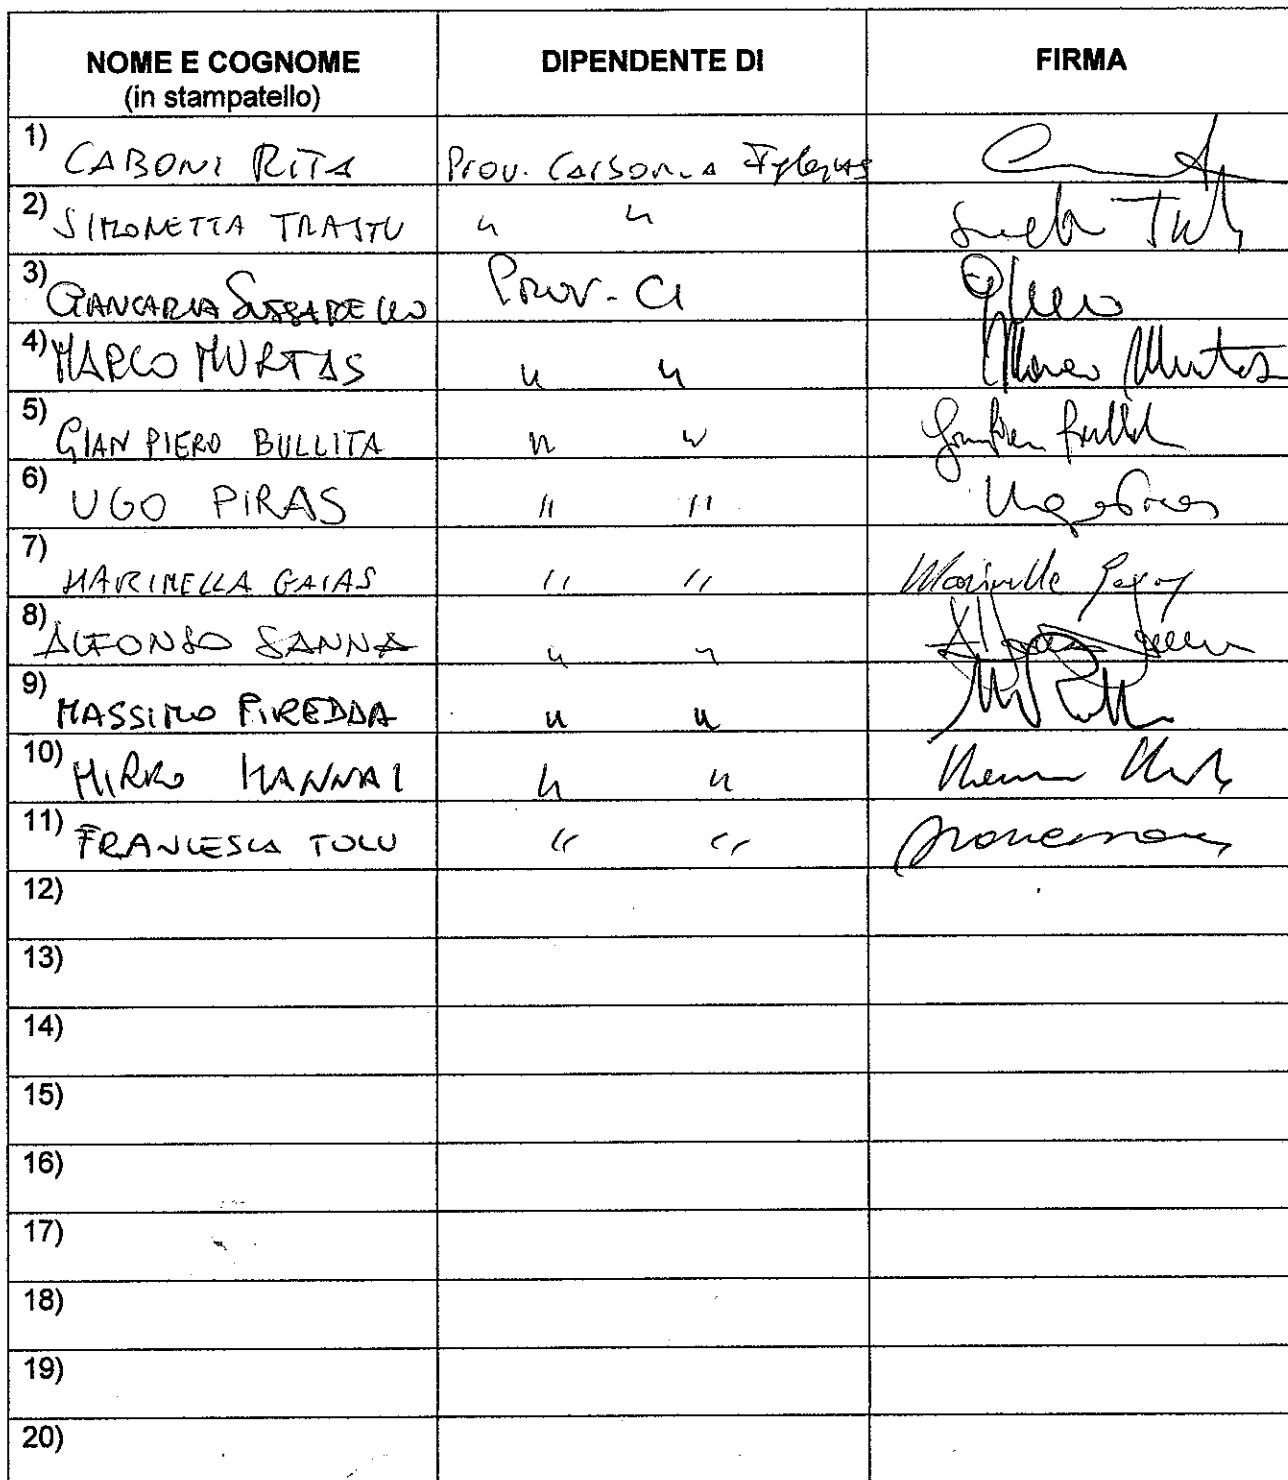 NOME E COGNOME DIPENDENTE DI FIRMA
(in stampatello)
1) CABONI RITA Prov. Carbonia Iglesias
2) SIMONETTA TRASTU " "
3) GIANCARLA Prov. CI
4) MARCO MURTAS " " Marco Murtas
5) GIAN PIERO BULLITA " "
6) UGO PIRAS " " Ugo Piras
7) MARINELLA GAIAS " " Marinella
8) ALFONSO SANNA " "
9) MASSIMO PIREDDA " "
10) MIRKO MANNAI " "
11) FRANCESCA TOLU " "
12)
13)
14)
15)
16)
17)
18)
19)
20)